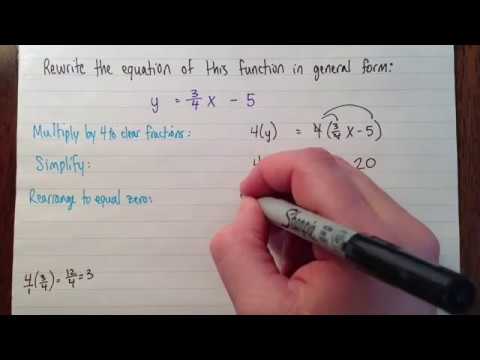 Rewrite the equation of this function in general form:
y = 3/4 x - 5
Multiply by 4 to clear fractions: 4(y) = 4(3/4 x - 5)
Simplify: 4 20
Rearrange to equal zero:
4/1 (3/4) = 12/4 = 3
Sharpie